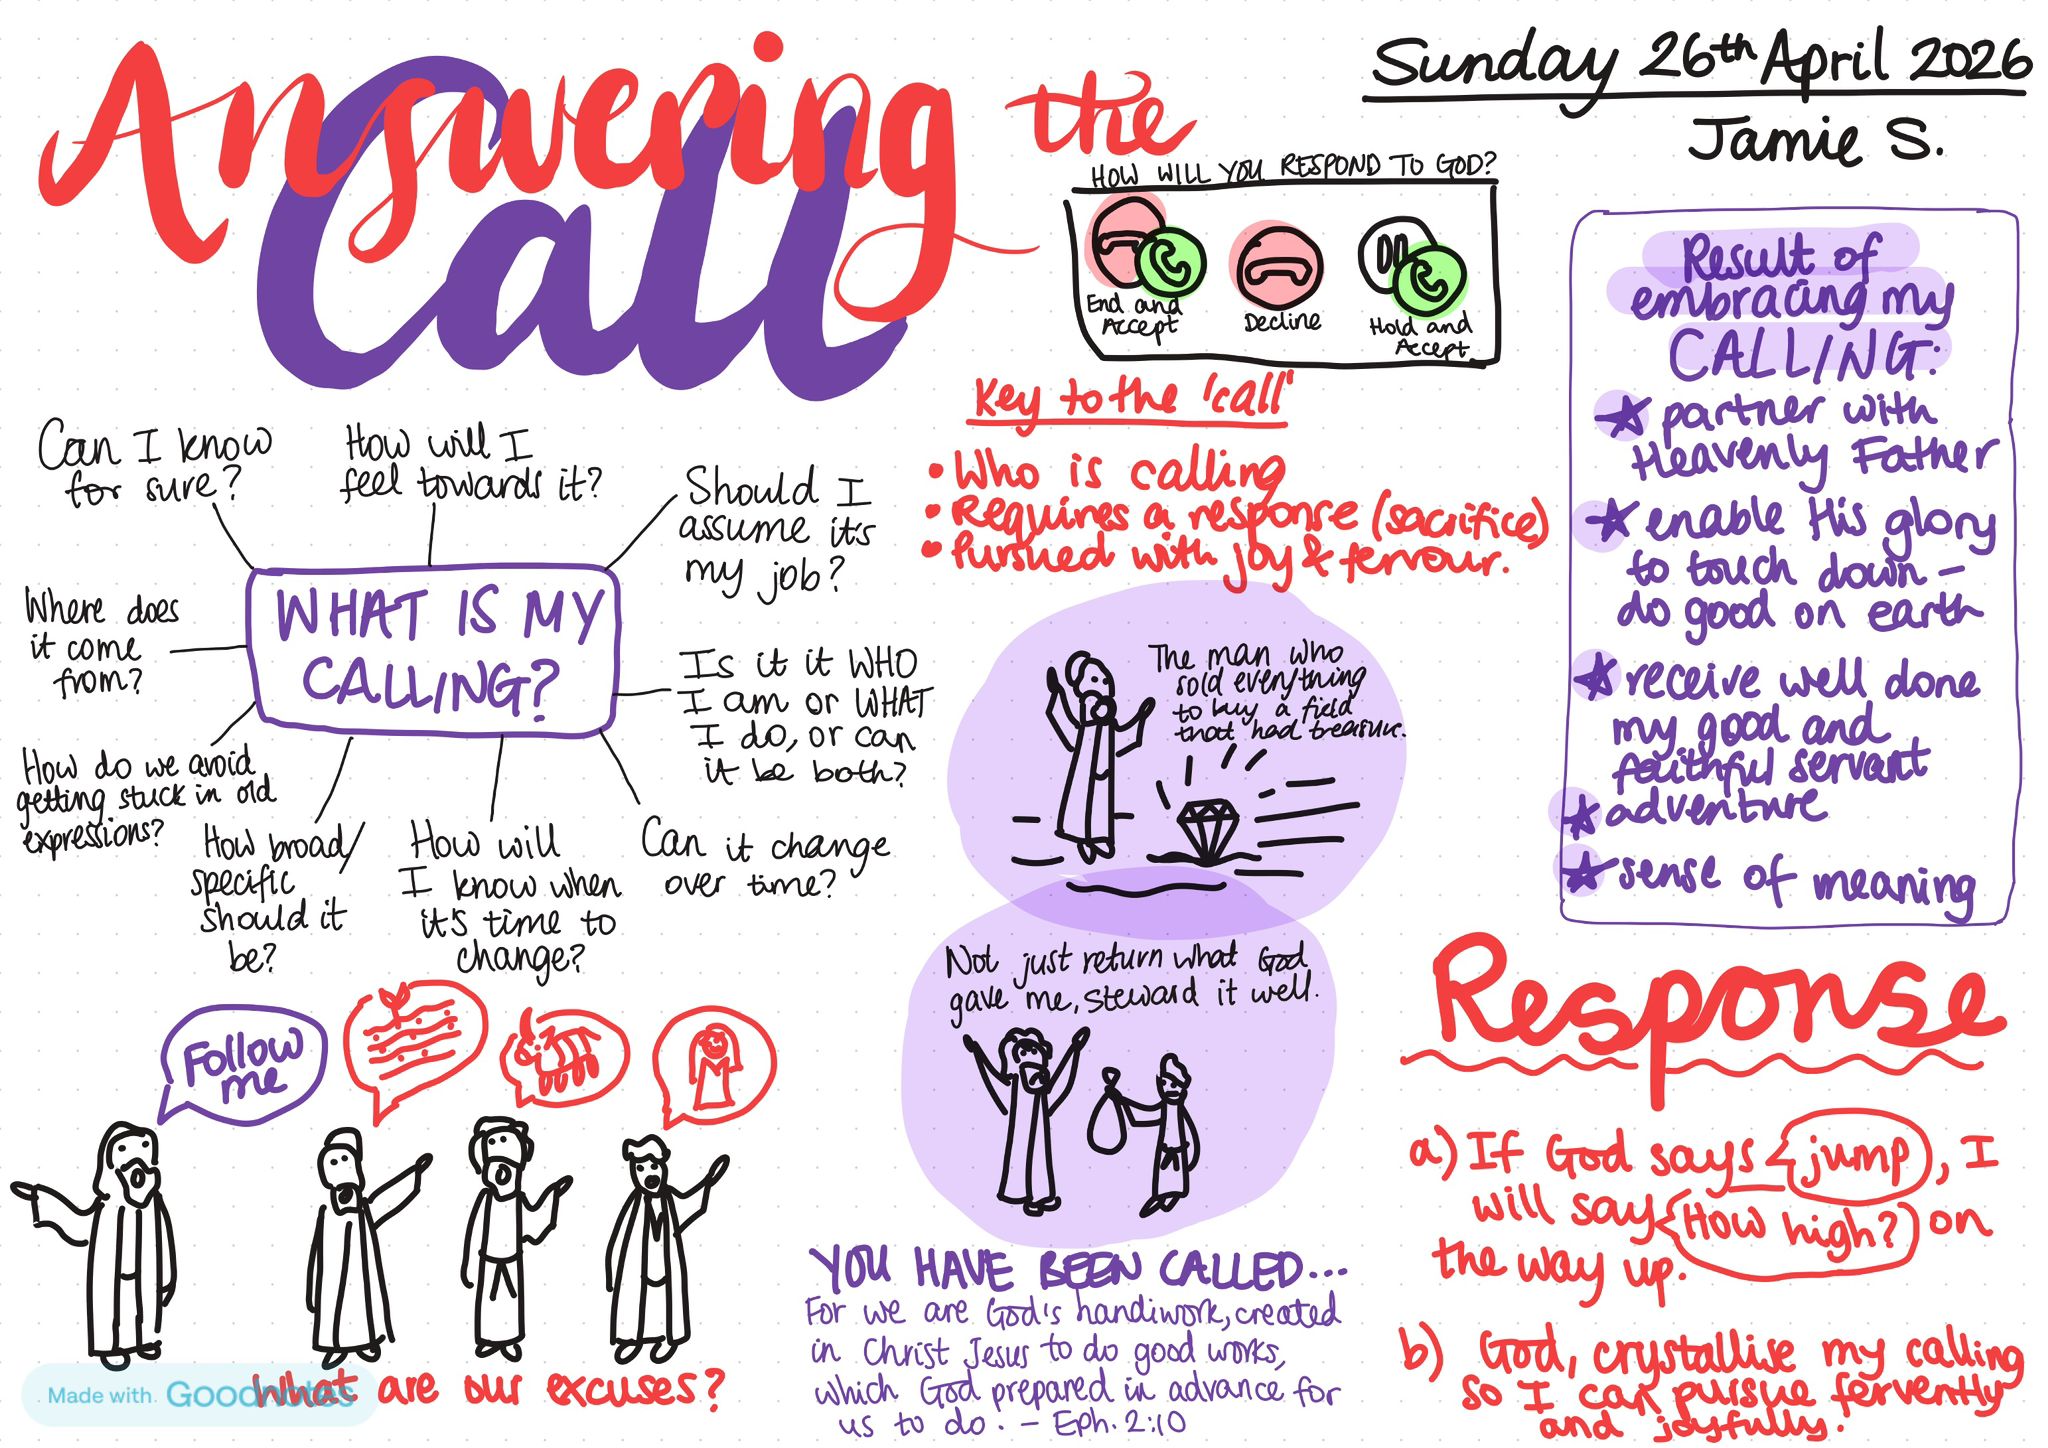 Answering the
Call
Sunday 26th April 2026
Jamie S.
HOW WILL YOU RESPOND TO GOD?
End and
Accept
Decline
Hold and
Accept
Key to the 'call'
• Who is calling
• Requires a response (sacrifice)
• Pursued with joy & fervour.
Result of
embracing my
CALLING:
partner with
Heavenly Father
enable His glory
to touch down –
do good on earth
receive well done
my good and
faithful servant
adventure
sense of meaning
WHAT IS MY
CALLING?
Can I know
for sure?
How will I
feel towards it?
Should I
assume it's
my job?
Is it it WHO
I am or WHAT
I do, or can
it be both?
Can it change
over time?
How will
I know when
it's time to
change?
How broad/
specific
should it
be?
How do we avoid
getting stuck in old
expressions?
Where does
it come
from?
The man who
sold everything
to buy a field
that had treasure.
Not just return what God
gave me, steward it well.
Follow
me
What are our excuses?
Made with Goodnotes
YOU HAVE BEEN CALLED...
For we are God's handiwork, created
in Christ Jesus to do good works,
which God prepared in advance for
us to do. – Eph. 2:10
Response
a) If God says jump, I
will say How high? on
the way up.
b) God, crystallise my calling
so I can pursue fervently
and joyfully.